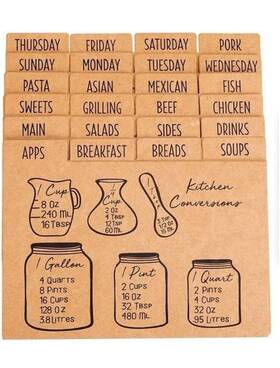 THURSDAY FRIDAY SATURDAY PORK
SUNDAY MONDAY TUESDAY WEDNESDAY
PASTA ASIAN MEXICAN FISH
SWEETS GRILLING BEEF CHICKEN
MAIN SALADS SIDES DRINKS
APPS BREAKFAST BREADS SOUPS
Kitchen
Conversions
1 Cup
8 Oz
240 ML
16 TBSP
1/4
Cup
2 Oz
4 TBSP
12 TSP
60 ML
1 TBSP
3 TSP
1/2 OZ
15 ML
1 Gallon
4 QUARTS
8 PINTS
16 CUPS
128 OZ
3.8 LITRES
1 Pint
2 CUPS
16 OZ
32 TBSP
480 ML
1 Quart
2 PINTS
4 CUPS
32 OZ
.95 LITRES